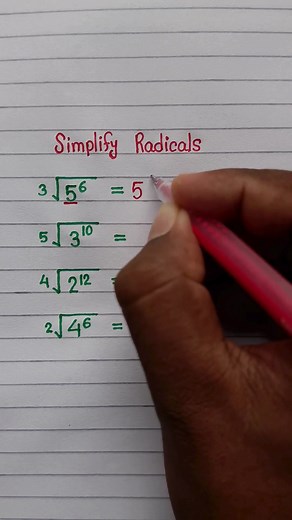 Simplify Radicals
3√5⁶ = 5
5√3¹⁰ =
4√2¹² =
2√4⁶ =